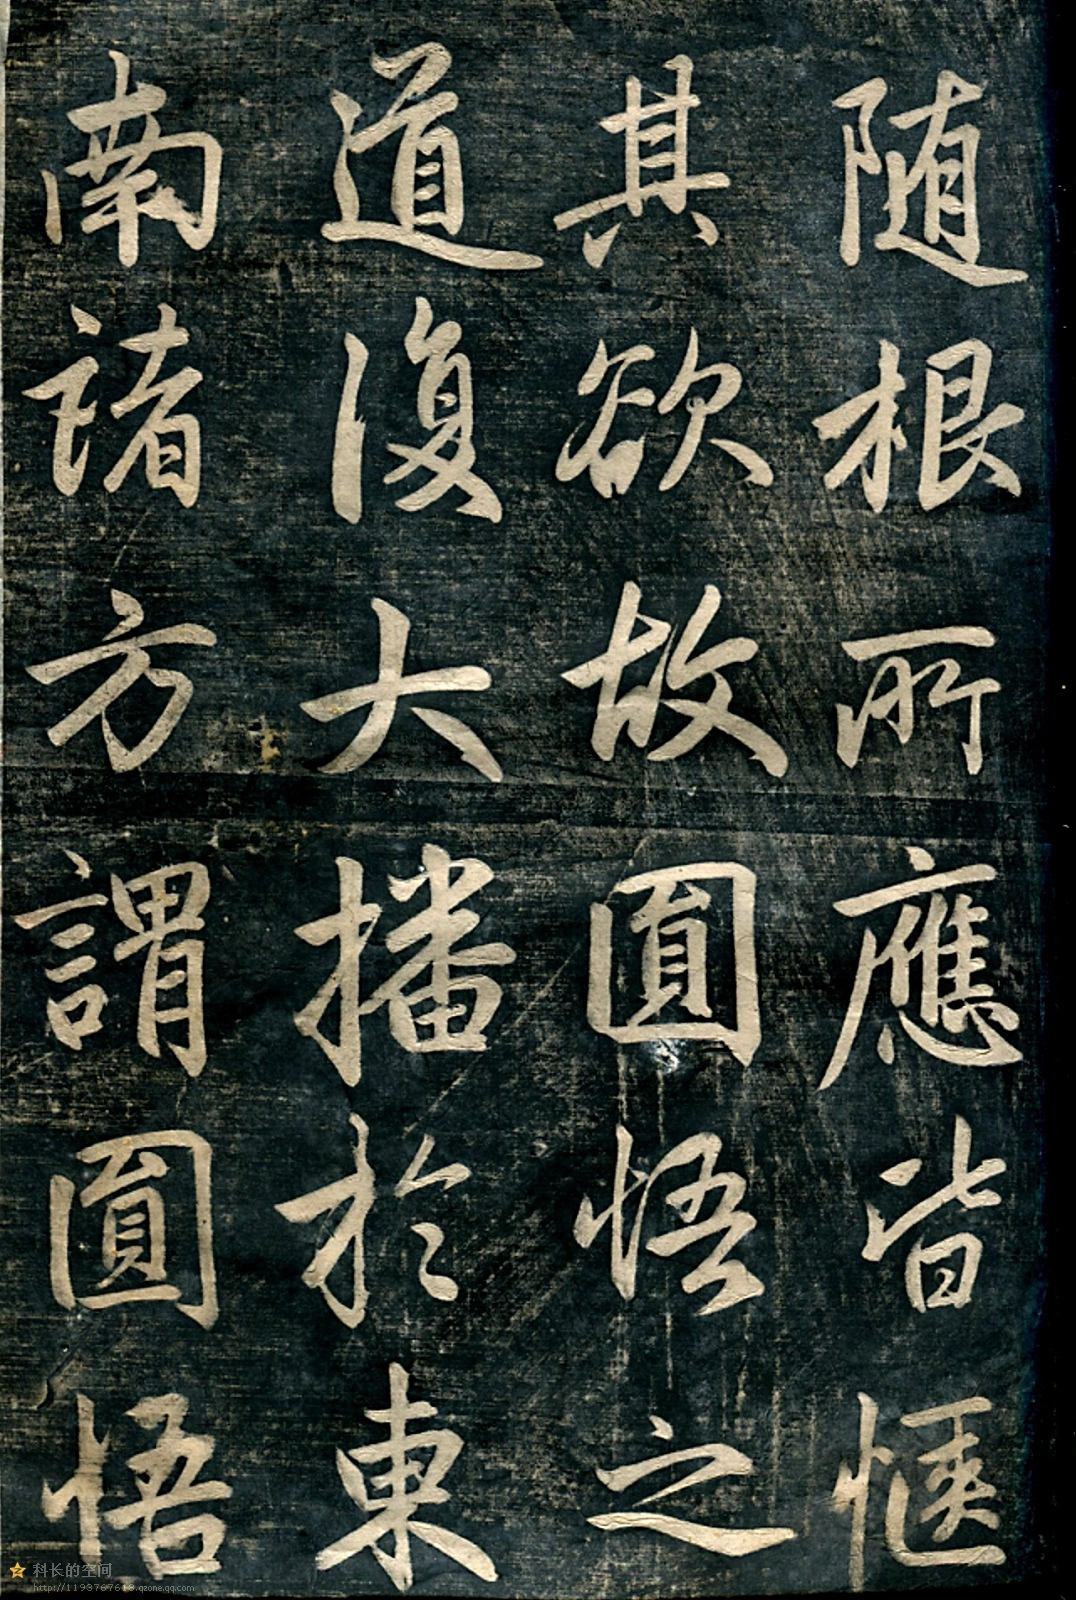 随根所應皆愜
其欲故圓悟之
道復大播於東
南諸方謂圓悟
科长的空间
http://1193767618.qzone.qq.com